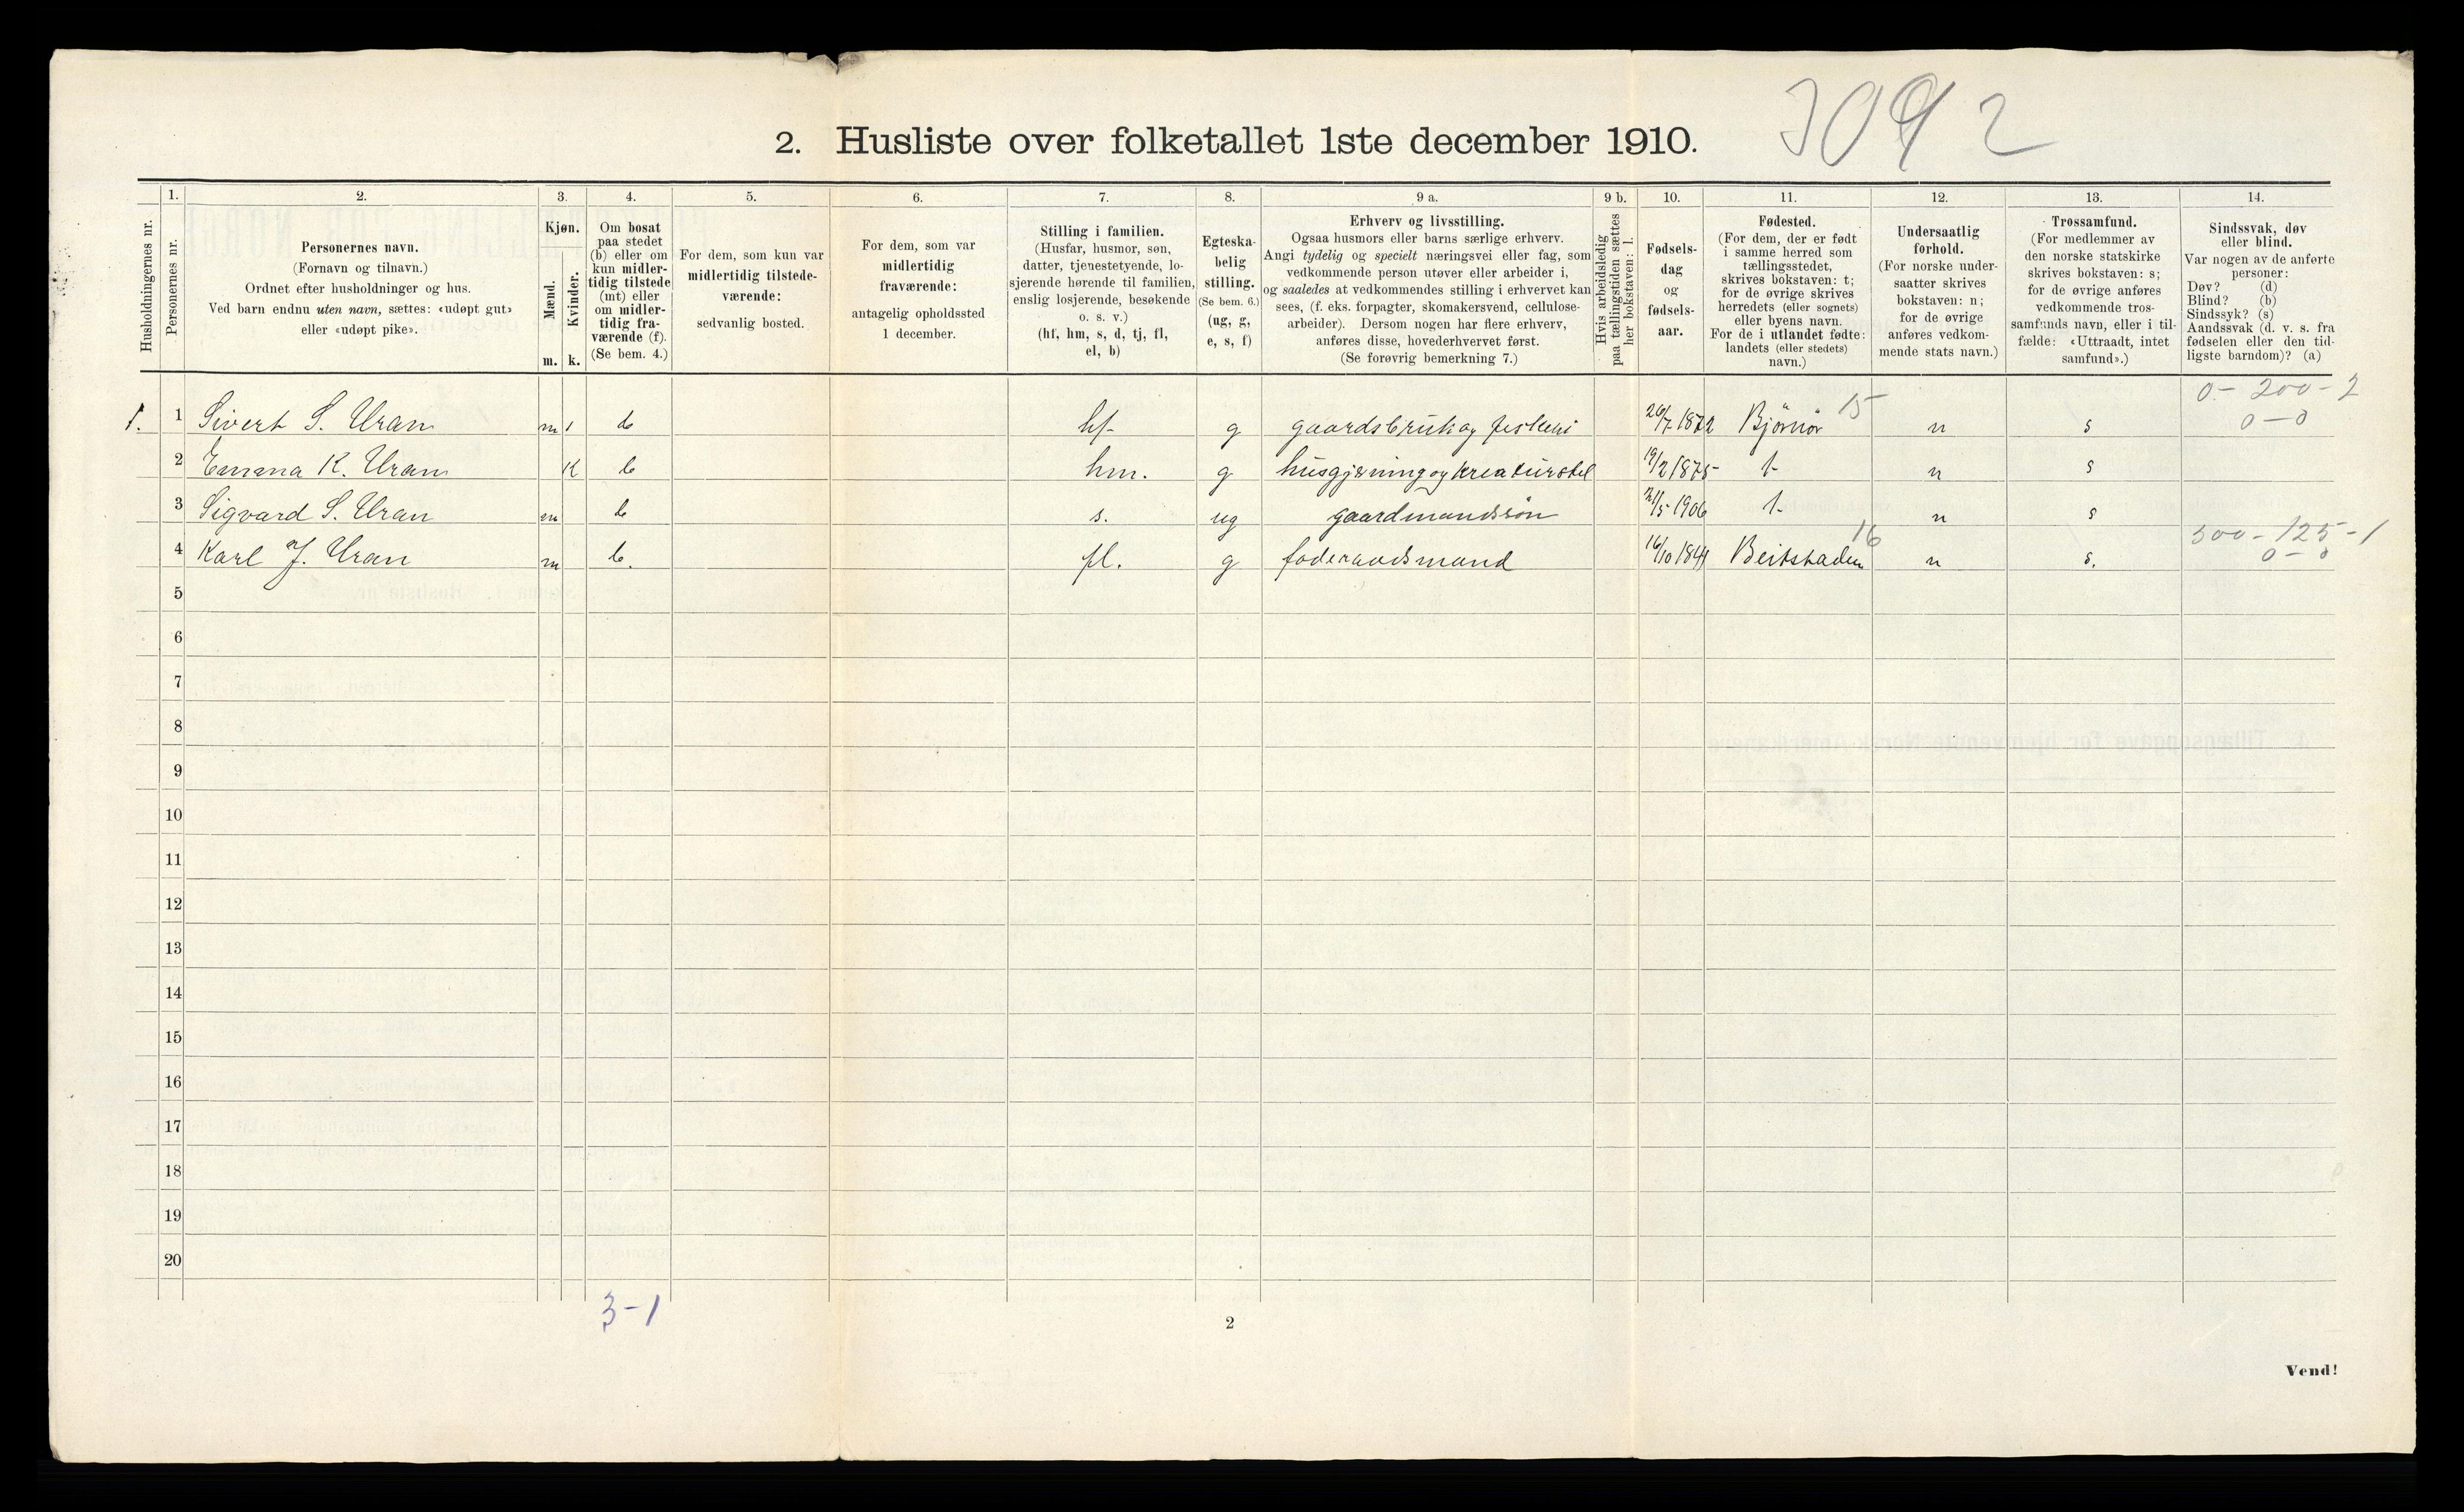 3092
2. Husliste over folketallet 1ste december 1910.
Husholdningernes nr.
1.
Personernes nr.
2.
Personernes navn.
(Fornavn og tilnavn.)
Ordnet efter husholdninger og hus.
Ved barn endnu uten navn, sættes: «udøpt gut»
eller «udøpt pike».
3.
Kjøn.
Mænd.
Kvinder.
m. k.
4.
Om bosat
paa stedet
(b) eller om
kun midler-
tidig tilstede
(mt) eller
om midler-
tidig fra-
værende (f).
(Se bem. 4.)
5.
For dem, som kun var
midlertidig tilstede-
værende:
sedvanlig bosted.
6.
For dem, som var
midlertidig
fraværende:
antagelig opholdssted
1 december.
7.
Stilling i familien.
(Husfar, husmor, søn,
datter, tjenestetyende, lo-
sjerende hørende til familien,
enslig losjerende, besøkende
o. s. v.)
(hf, hm, s, d, tj, fl,
el, b)
8.
Egteska-
belig
stilling.
(Se bem. 6.)
(ug, g,
e, s, f)
9 a.
Erhverv og livsstilling.
Ogsaa husmors eller barns særlige erhverv.
Angi tydelig og specielt næringsvei eller fag, som
vedkommende person utøver eller arbeider i,
og saaledes at vedkommendes stilling i erhvervet kan
sees, (f. eks. forpagter, skomakersvend, cellulose-
arbeider). Dersom nogen har flere erhverv,
anføres disse, hovederhvervet først.
(Se forøvrig bemerkning 7.)
9 b.
Hvis arbeidsledig
paa tællingstiden sættes
her bokstaven: l.
10.
Fødsels-
dag
og
fødsels-
aar.
11.
Fødested.
(For dem, der er født
i samme herred som
tællingsstedet,
skrives bokstaven: t;
for de øvrige skrives
herredets (eller sognets)
eller byens navn.
For de i utlandet fødte:
landets (eller stedets)
navn.)
12.
Undersaatlig
forhold.
(For norske under-
saatter skrives
bokstaven: n;
for de øvrige
anføres vedkom-
mende stats navn.)
13.
Trossamfund.
(For medlemmer av
den norske statskirke
skrives bokstaven: s;
for de øvrige anføres
vedkommende tros-
samfunds navn, eller i til-
fælde: «Uttraadt, intet
samfund».)
14.
Sindssvak, døv
eller blind.
Var nogen av de anførte
personer:
Døv? (d)
Blind? (b)
Sindssyk? (s)
Aandssvak (d. v. s. fra
fødselen eller den tid-
ligste barndom)? (a)
15 0 - 200 - 2
1. 1 Sivert S. Uran m 1 b hf g gaardsbruk og 26/7 1872 Bjørnør n s 0 - 0
2 Emma K. Uran K b hm. g husgjerning og kreaturstel 19/2 1875 t n s
3 Sigvard S. Uran m b s. ug gaardmandssøn 21/5 1906 t n s
16 500 - 125 - 1
4 Karl J. Uran m b. fl. g føderaadsmand 16/10 1841 Beitstaden n s. 0 - 0
5
6
7
8
9
10
11
12
13
14
15
16
17
18
19
20
3-1
2
Vend!